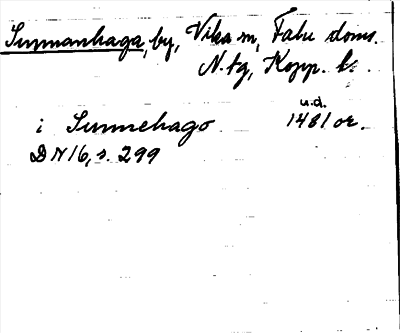 Sunnanhaga, by, Vika sn, Falu doms.
N. tg, Kopp. l.
u.d.
i Sunnehago 1481 or.
DN 16, s. 299